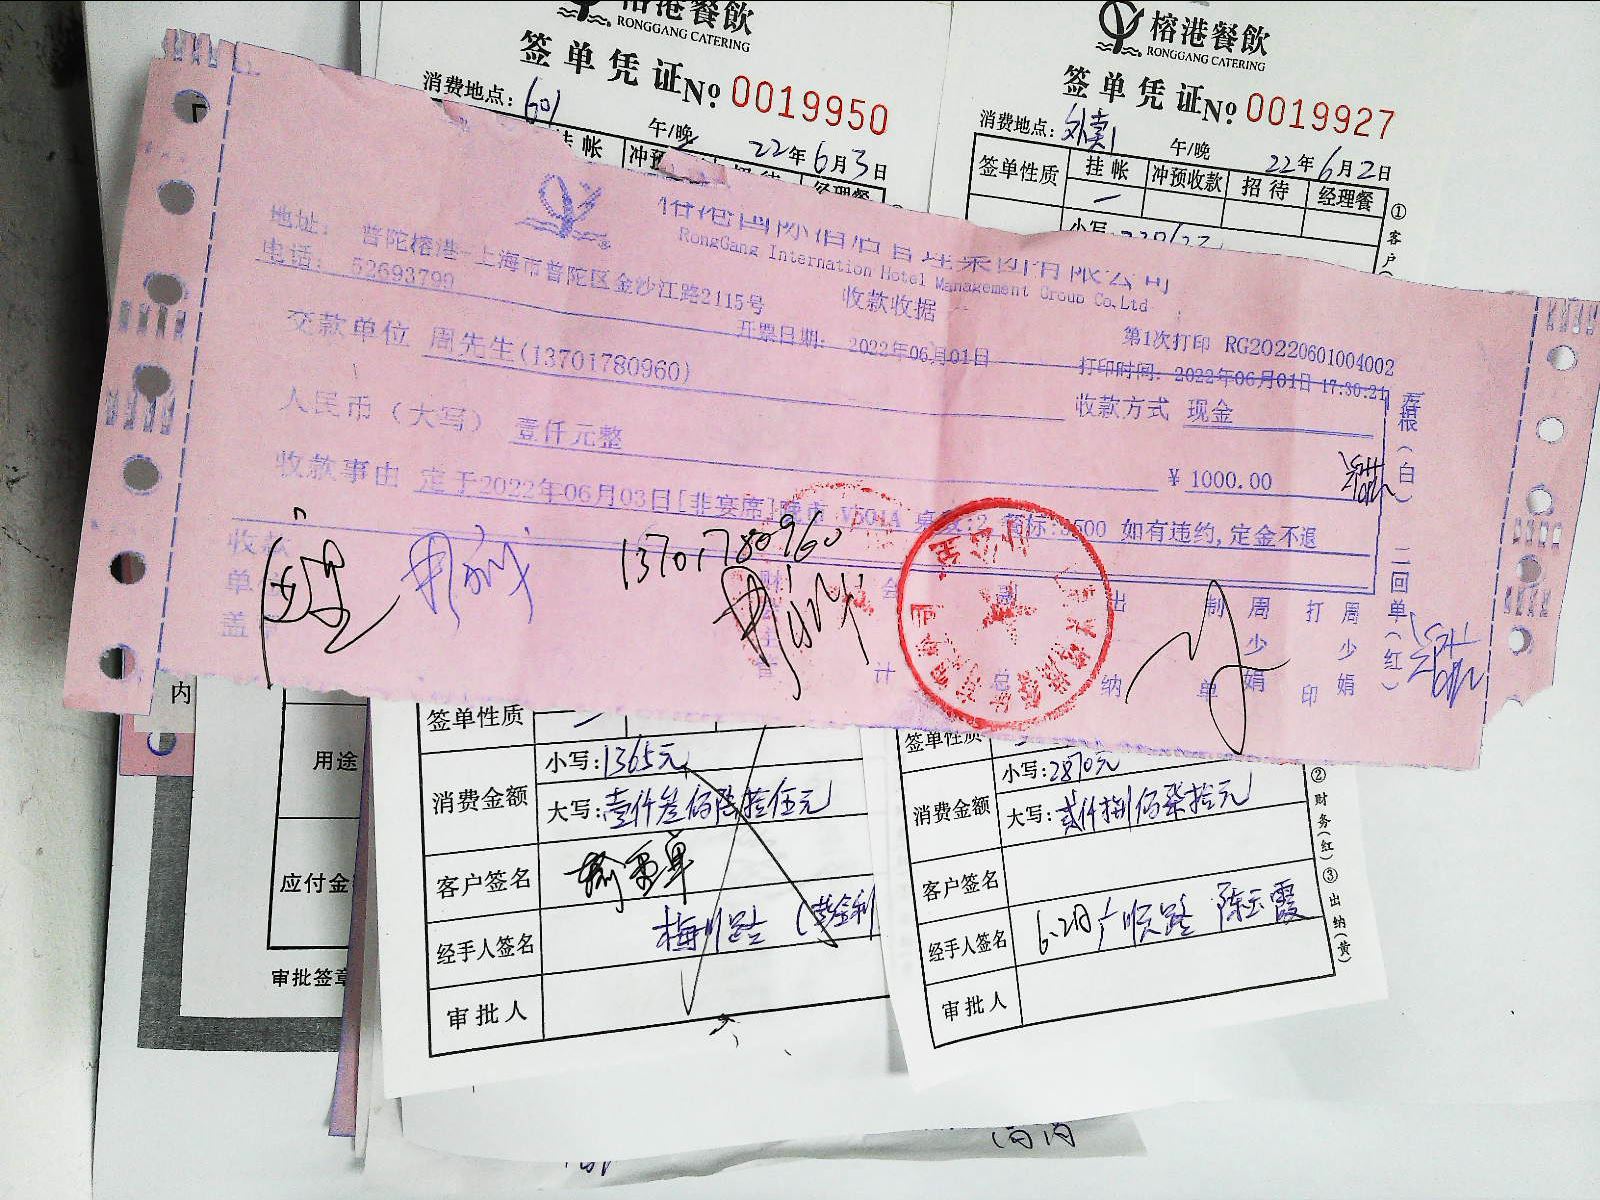 榕港餐飲
RONGGANG CATERING
签单凭证 No 0019950
消费地点: 601
午/晚 22年6月3日
挂帐
榕港餐飲
RONGGANG CATERING
签单凭证 No 0019927
消费地点: 外卖1
午/晚 22年6月2日
签单性质 挂帐 冲预收款 招待 经理餐
小写:
① 客户
榕港国际酒店管理集团有限公司
RongGang Internation Hotel Management Group Co.Ltd
地址: 普陀榕港-上海市普陀区金沙江路2115号
电话: 52693790
收款收据
开票日期: 2022年06月01日
第1次打印 RG20220601004002
打印时间: 2022年06月01日 17:30:21
交款单位 周先生(13701780960)
收款方式 现金
人民币(大写) 壹仟元整
¥ 1000.00
收款事由 定于2022年06月03日[非宴席]晚市 V501A 桌数:2 餐标:3500 如有违约,定金不退
存根(白) 二回单(红)
收款单 盖
13701780960
会计
出纳
制单 周少娟
打印 周少娟
内
用途
应付金
审批签章
签单性质
消费金额 小写: 1365元
大写: 壹仟叁佰陆拾伍元
客户签名
经手人签名 梅川路
审批人
签单性质
消费金额 小写: 2870元
大写: 贰仟捌佰柒拾元
客户签名
经手人签名 6.2日 广顺路 陈玉霞
审批人
② 财务(红) ③ 出纳(黄)